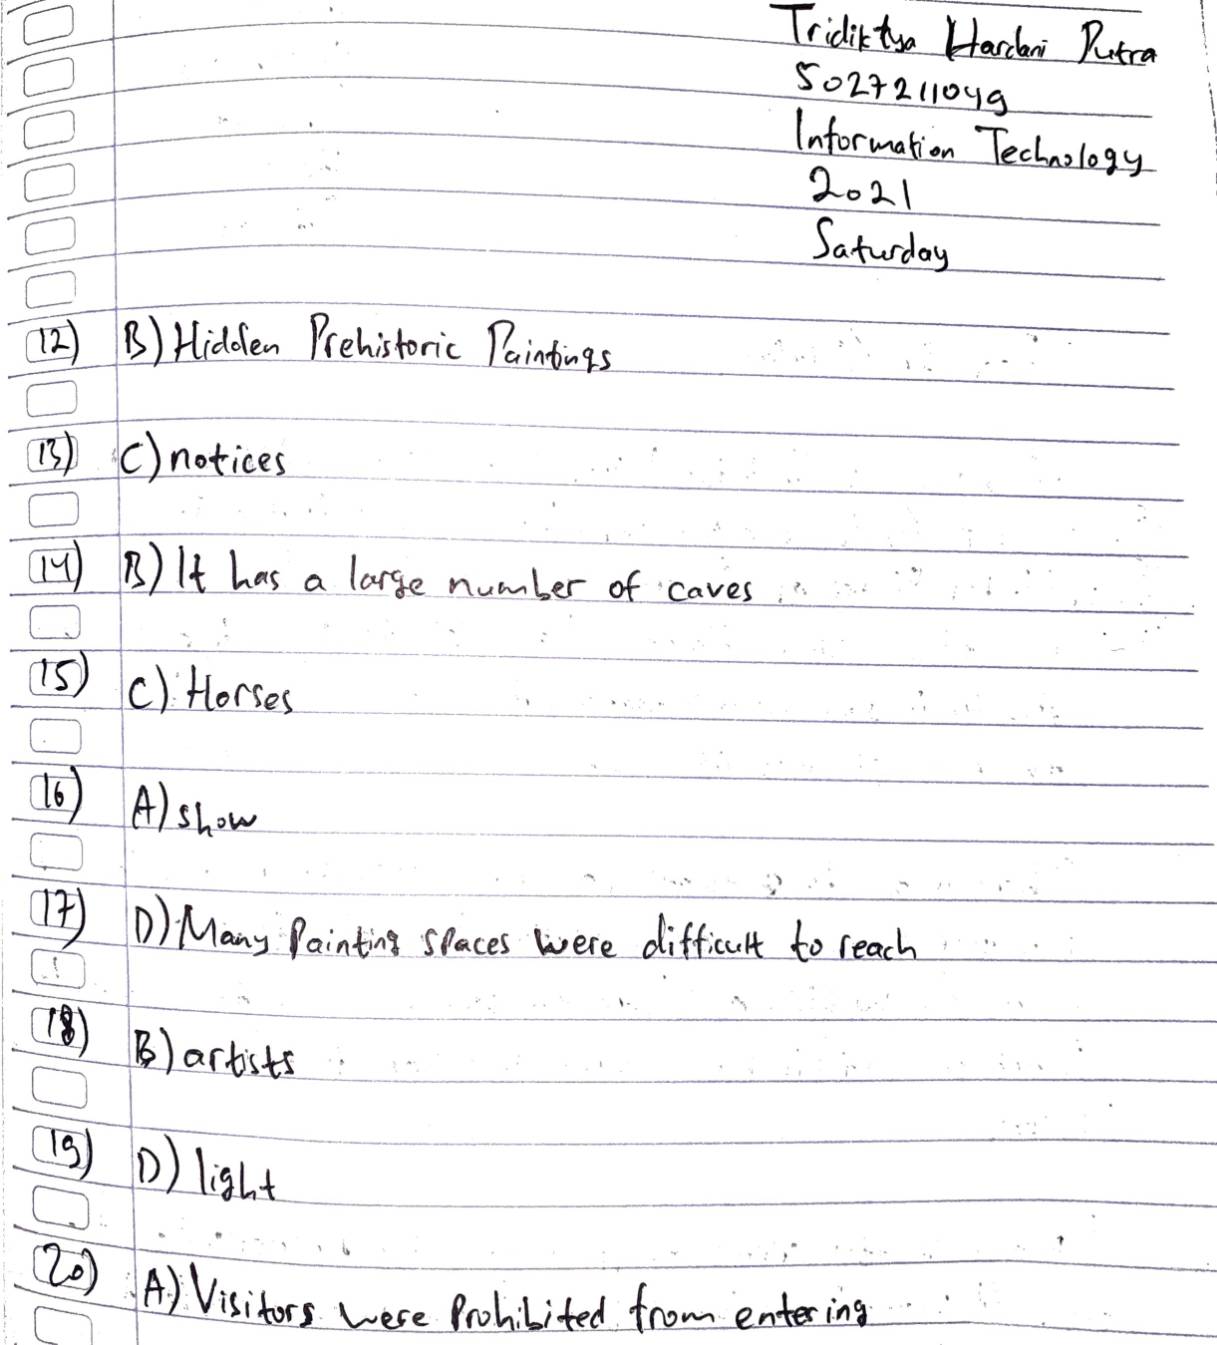 Tridiktya Hardani Putra
5027211049
Information Technology
2021
Saturday
12) B) Hidden Prehistoric Paintings
13) C) notices
14) B) It has a large number of caves
15) C) Horses
16) A) show
17) D) Many Painting spaces were difficult to reach
18) B) artists
19) D) light
20) A) Visitors were Prohibited from entering